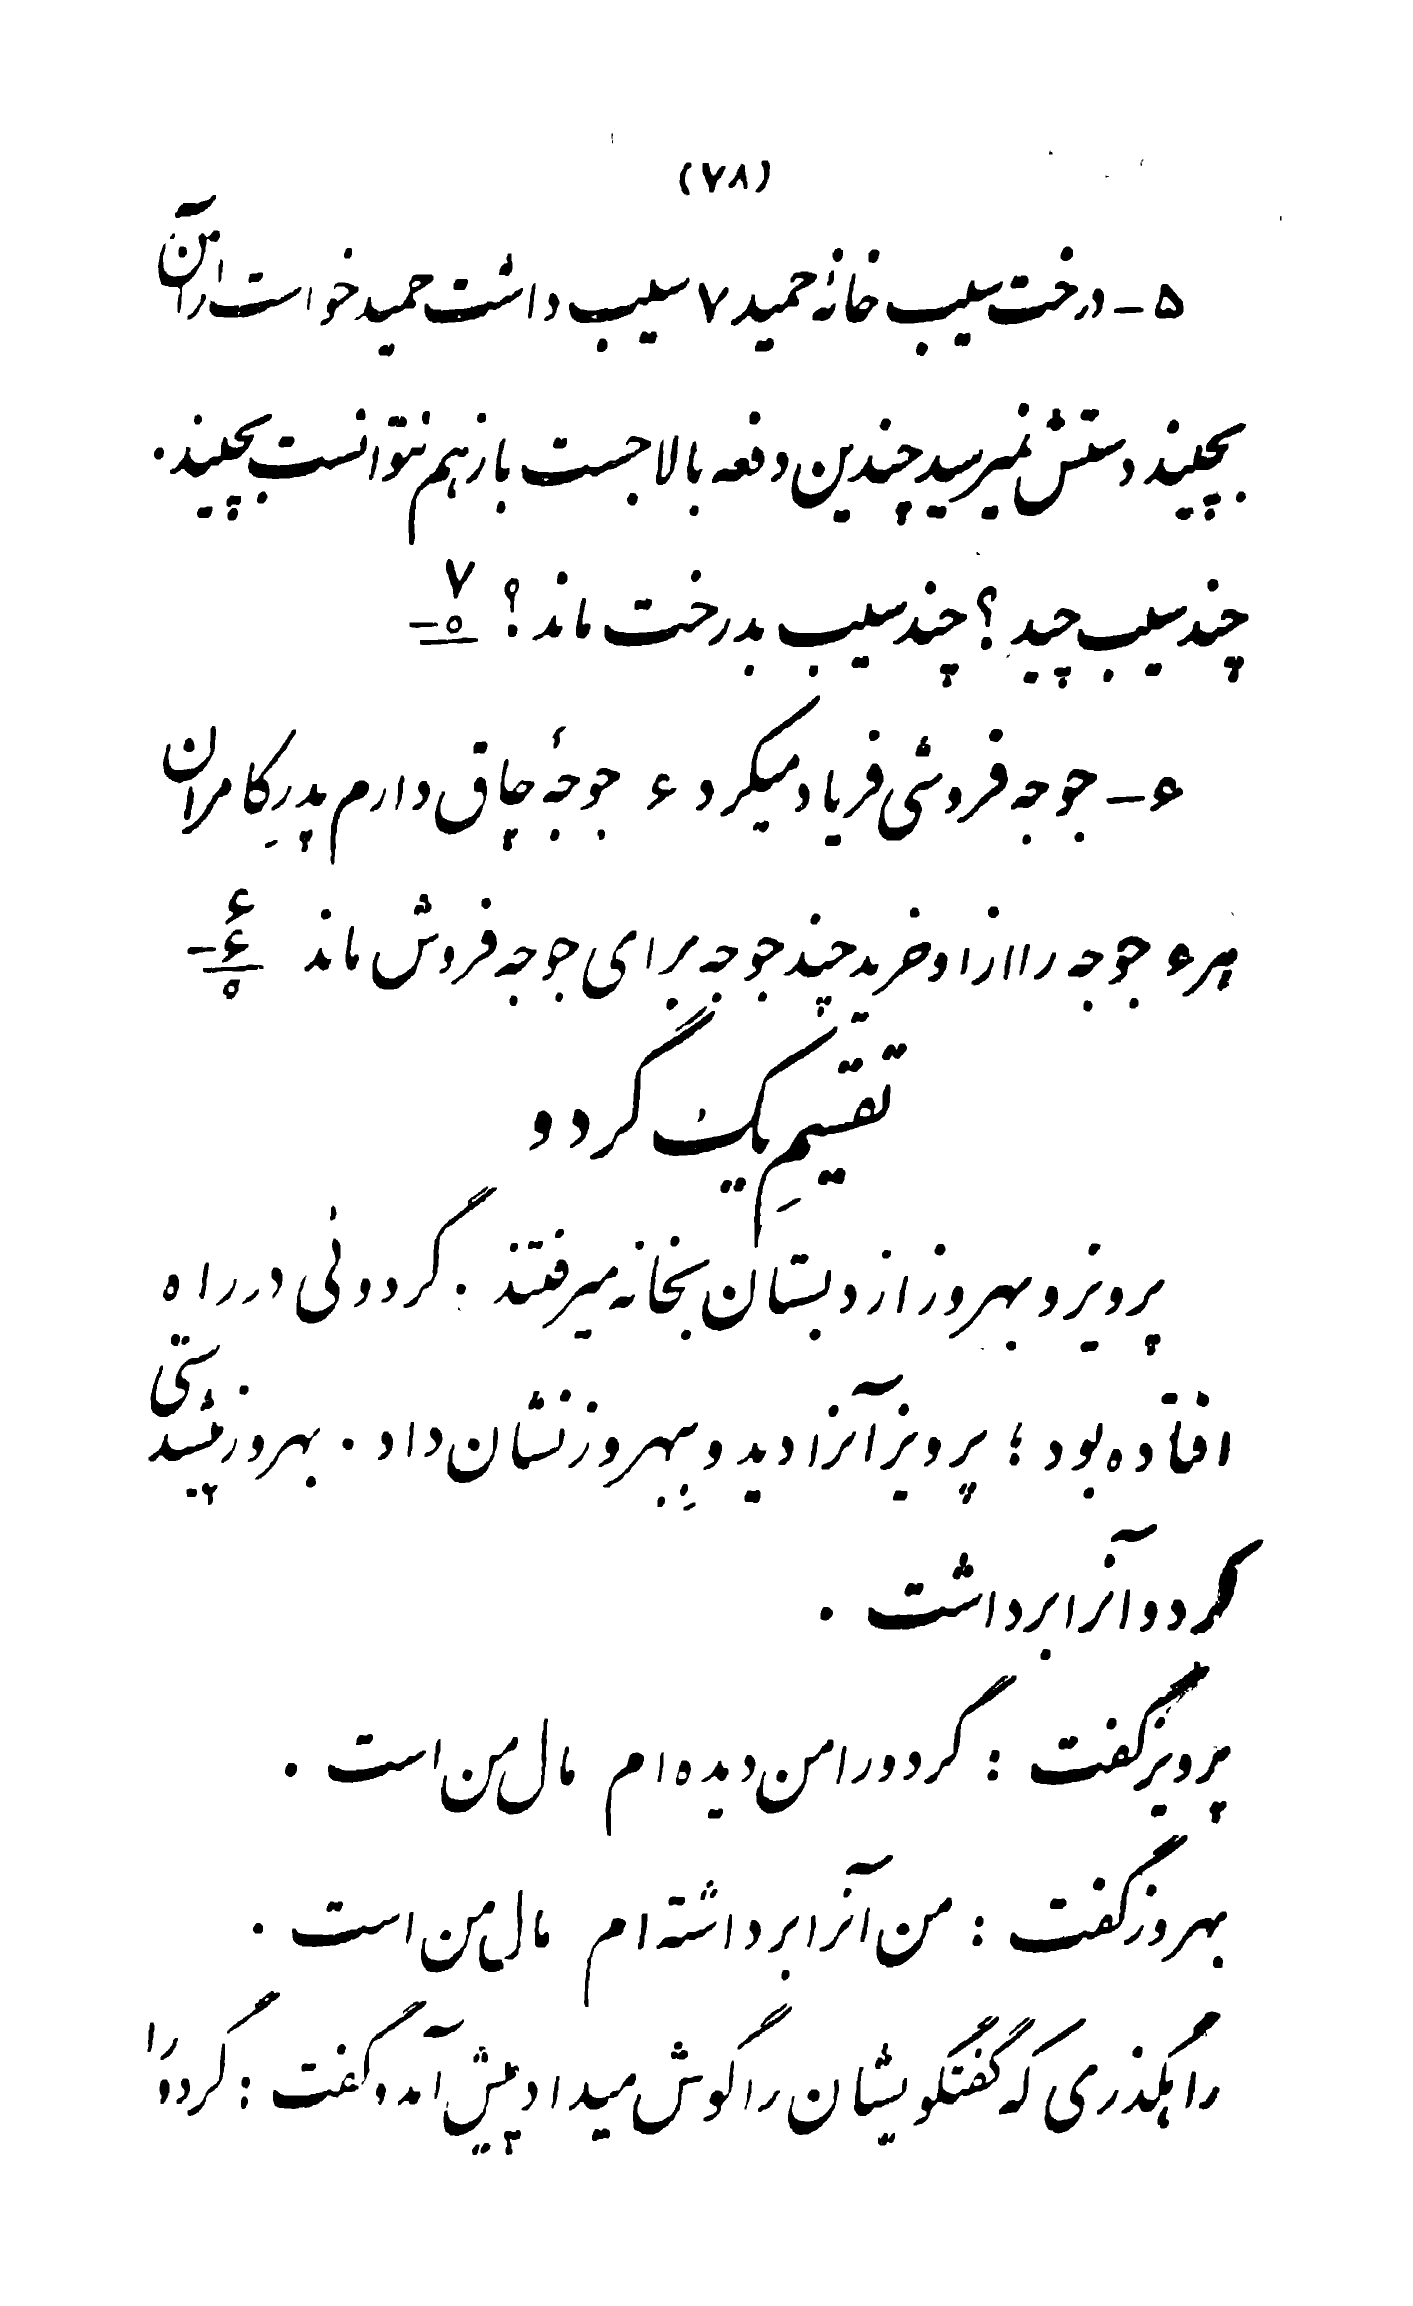 (۷۸)
۵ - درخت سیب خانهٔ حمید ۷ سیب داشت حمید خواست از آن
بچیند دستش نمیرسید چندین دفعه بالا جست باز هم نتوانست بچیند.
چند سیب چید؟ چند سیب بدرخت ماند؟ ۷
-۰
۶ - جوجه فروشی فریاد میکرد ۶ جوجهٔ چاق دارم پدرِ کامران
هر ۶ جوجه را از او خرید چند جوجه برای جوجه فروش ماند ۶
-۶
۰
تقسیمِ یک گردو
پرویز و بهروز از دبستان بخانه میرفتند. گردوئی در راه
افتاده بود؛ پرویز آنرا دید و بِبهروز نشان داد. بهروز پیشدستی
کرد و آنرا برداشت.
پرویز گفت: گردو را من دیده ام مال من است.
بهروز گفت: من آنرا برداشته ام مال من است.
راهگذری که گفتگویشان را گوش میداد پیش آمد و گفت: گردو را